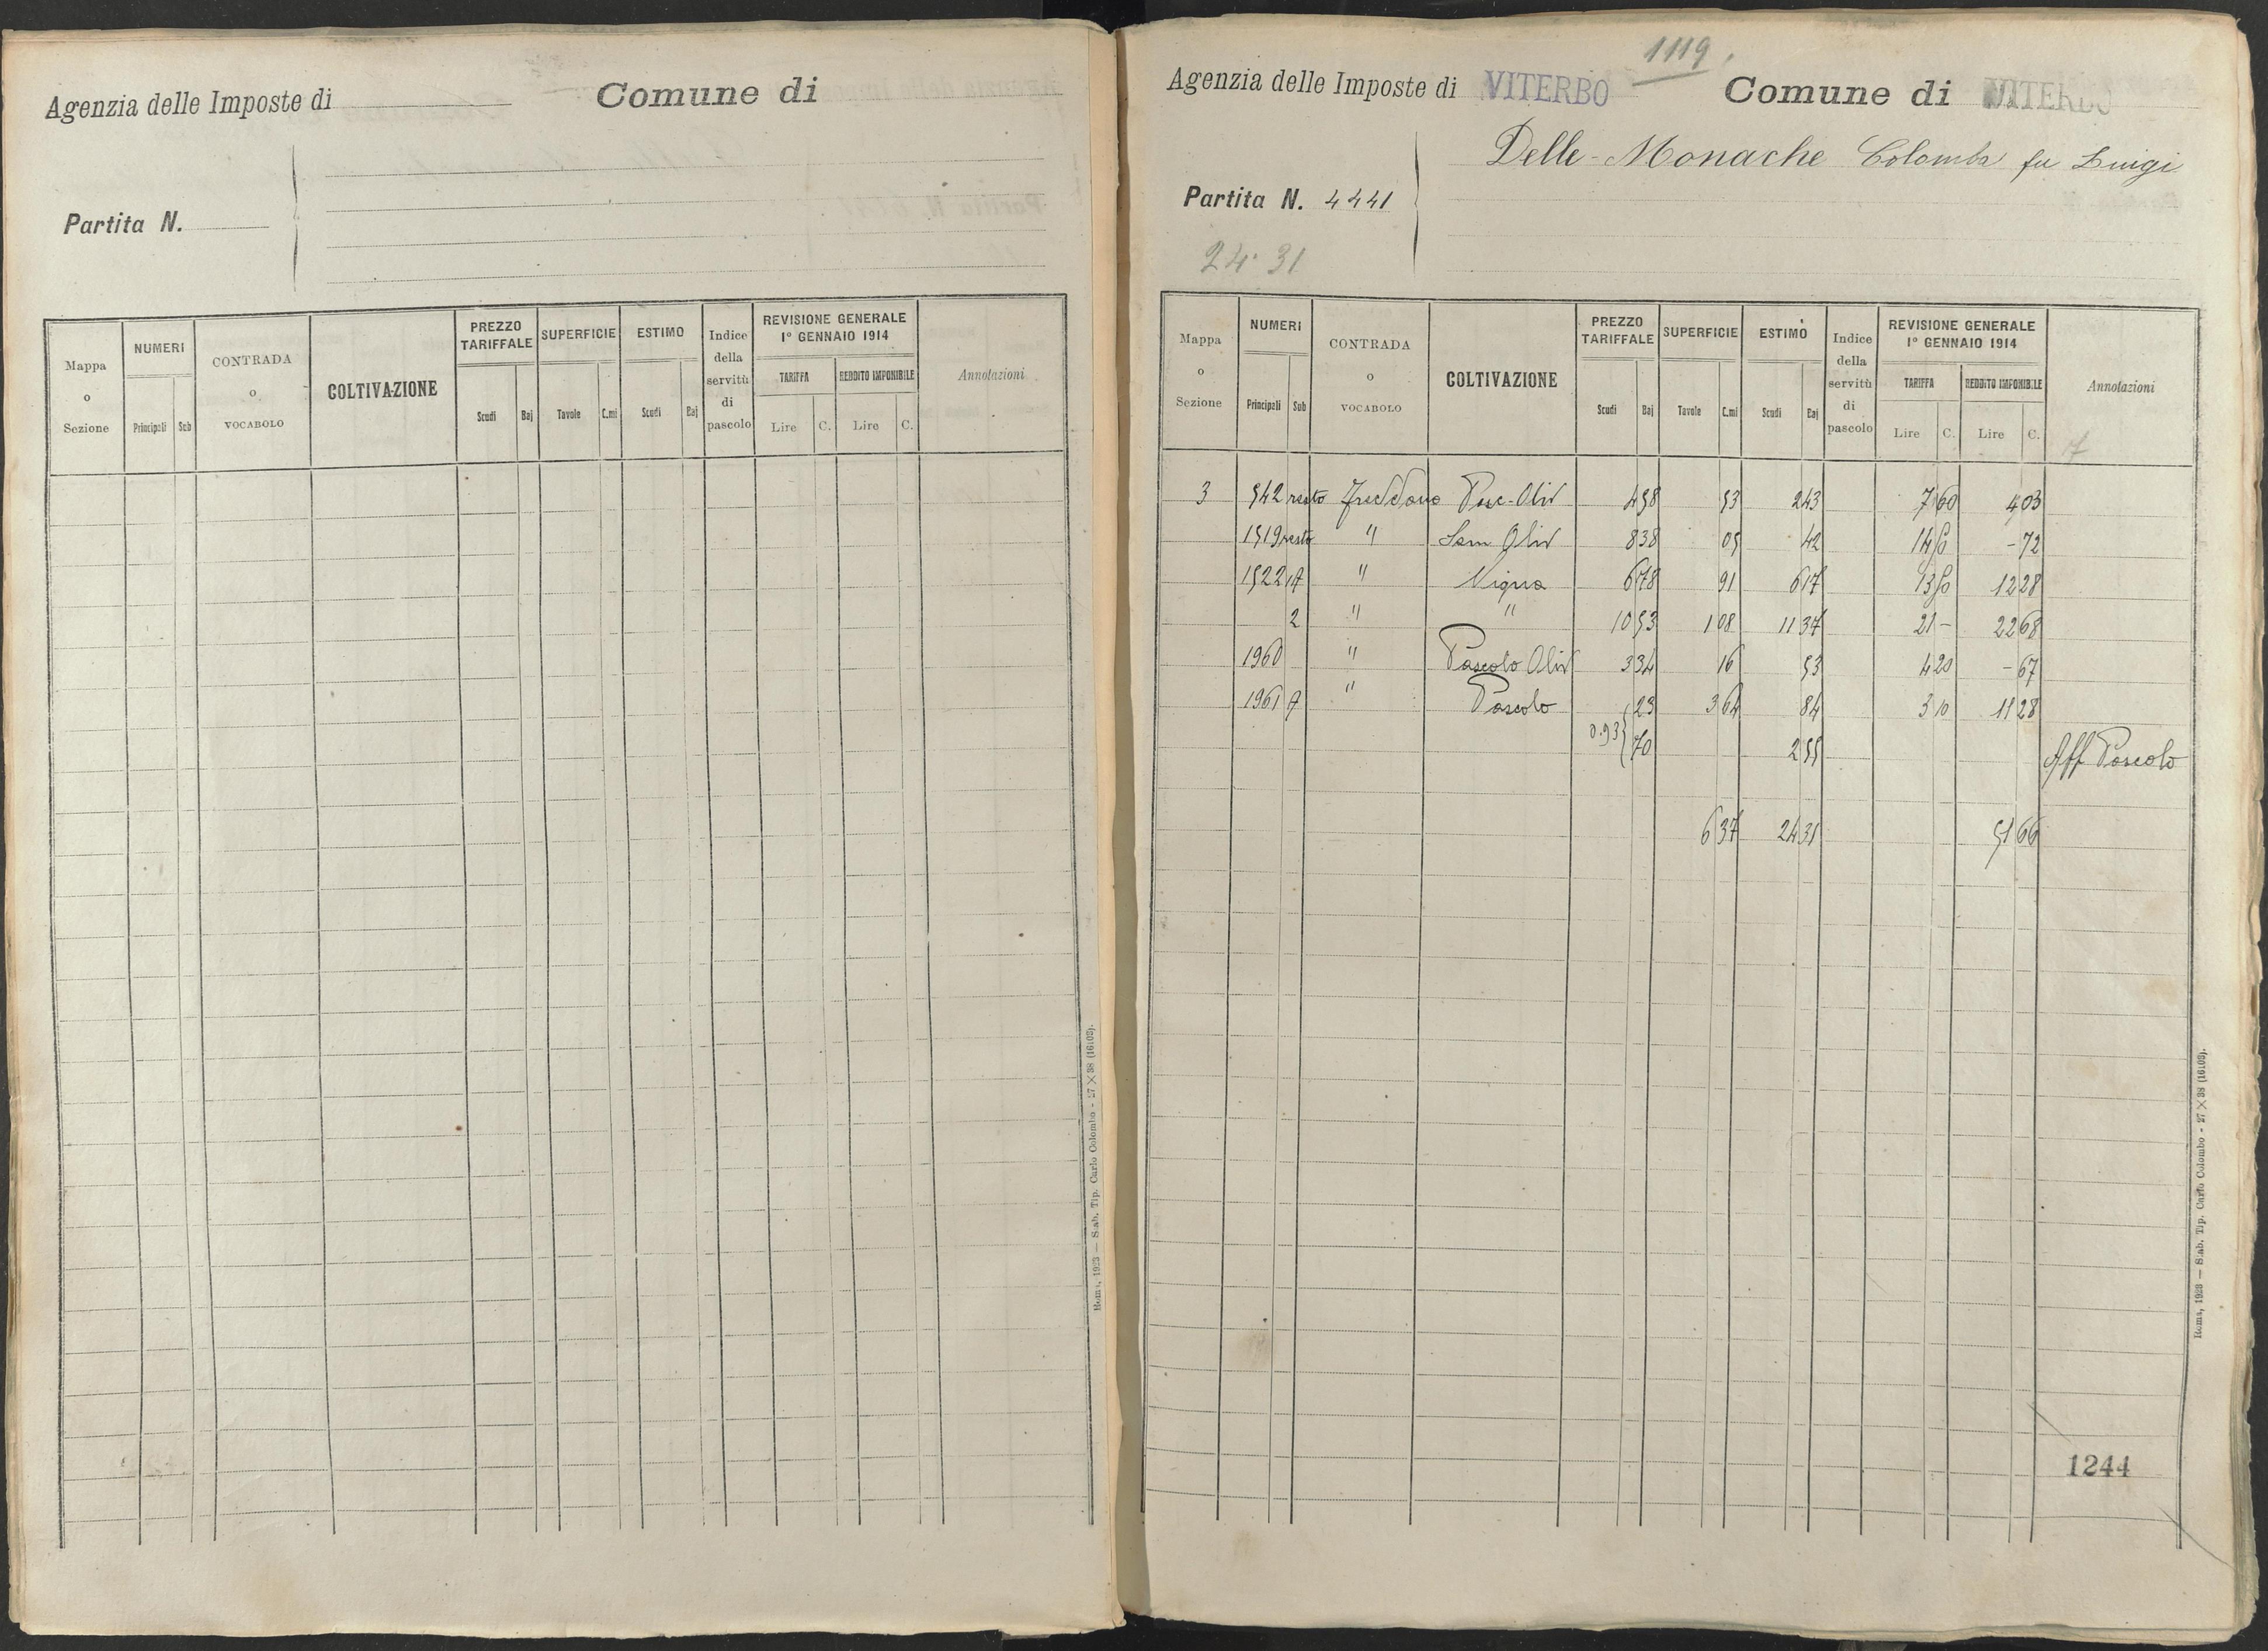 Agenzia delle Imposte di Comune di
Partita N.
Mappa o Sezione NUMERI Principali Sub CONTRADA o VOCABOLO COLTIVAZIONE PREZZO TARIFFALE Scudi Baj SUPERFICIE Tavole C.mi ESTIMO Scudi Baj Indice della servitù di pascolo REVISIONE GENERALE 1° GENNAIO 1914 TARIFFA Lire C. REDDITO IMPONIBILE Lire C. Annotazioni
Roma, 1923 — Stab. Tip. Carlo Colombo - 27 X 38 (16103).
1119
Agenzia delle Imposte di VITERBO Comune di VITERBO
Delle-Monache Colomba fu Luigi
Partita N. 4441
24.31
Mappa o Sezione NUMERI Principali Sub CONTRADA o VOCABOLO COLTIVAZIONE PREZZO TARIFFALE Scudi Baj SUPERFICIE Tavole C.mi ESTIMO Scudi Baj Indice della servitù di pascolo REVISIONE GENERALE 1° GENNAIO 1914 TARIFFA Lire C. REDDITO IMPONIBILE Lire C. Annotazioni
7
3 542 resto Freddano Pasc-Oliv 4 58 53 2 43 7 60 4 03
1519 resto " Sem Oliv 8 38 05 42 14 50 - 72
1522 A " Vigna 6 78 91 6 17 13 50 12 28
2 " " 10 53 1 08 11 37 21 - 22 68
1960 " Pascolo Oliv 3 34 16 53 4 20 - 67
1961 A " Pascolo 23 3 64 84 3 10 11 28
0.93 70 2 55 Aff Pascolo
6 37 24 31 51 66
1244
Roma, 1923 — Stab. Tip. Carlo Colombo - 27 X 38 (16103).